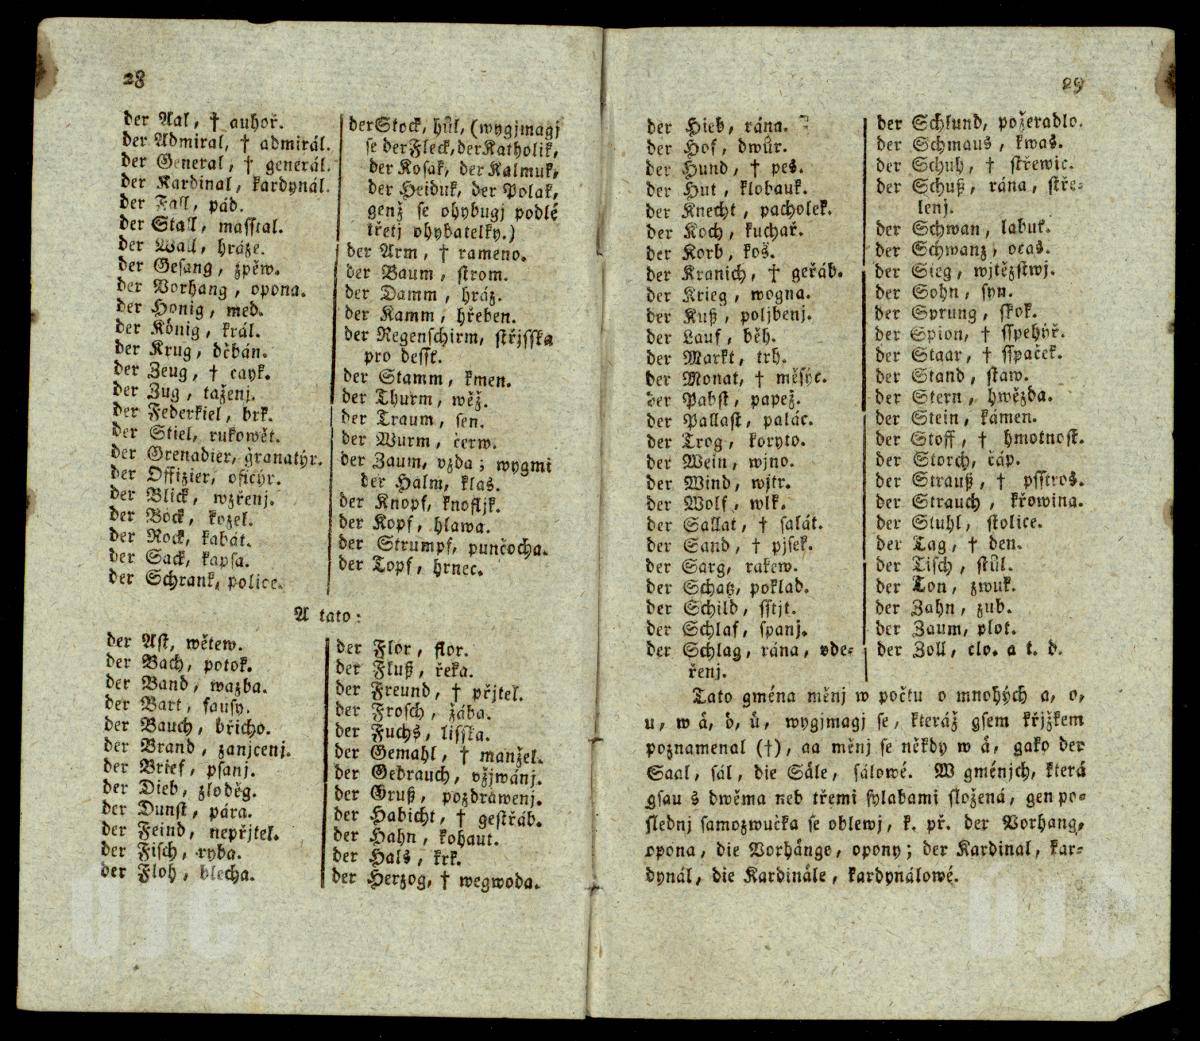 28
der Aal, † auhoř.
der Admiral, † admirál.
der General, † generál.
der Kardinal, kardynál.
der Fall, pád.
der Stall, masstal.
der Wall, hráze.
der Gesang, zpěw.
der Vorhang, opona.
der Honig, med.
der König, král.
der Krug, džbán.
der Zeug, † cayk.
der Zug, taženj.
der Federkiel, brk.
der Stiel, rukowět.
der Grenadier, granatýr.
der Offizier, oficýr.
der Blick, wzřenj.
der Bock, kozel.
der Rock, kabát.
der Sack, kapsa.
der Schrank, police.
der Stock, hůl, (wygjmagj
se der Fleck, der Katholik,
der Kosak, der Kalmuk,
der Heiduk, der Polak,
genž se ohybugj podlé
třetj ohybatelky.)
der Arm, † rameno.
der Baum, strom.
der Damm, hráz.
der Kamm, hřeben.
der Regenschirm, střjsska
pro dessť.
der Stamm, kmen.
der Thurm, wěž.
der Traum, sen.
der Wurm, čerw.
der Zaum, vzda; wygmi
der Halm, klas.
der Knopf, knofljk.
der Kopf, hlawa.
der Strumpf, punčocha.
der Topf, hrnec.
A tato:
der Ast, wětew.
der Bach, potok.
der Band, wazba.
der Bart, fausy.
der Bauch, břicho.
der Brand, zanjcenj.
der Brief, psanj.
der Dieb, zloděg.
der Dunst, pára.
der Feind, nepřjtel.
der Fisch, ryba.
der Floh, blecha.
der Flor, flor.
der Fluß, řeka.
der Freund, † přjtel.
der Frosch, žába.
der Fuchs, lisska.
der Gemahl, † manžel.
der Gebrauch, vžjwánj.
der Gruß, pozdrawenj.
der Habicht, † gestřáb.
der Hahn, kohaut.
der Hals, krk.
der Herzog, † wegwoda.
29
der Hieb, rána.
der Hof, dwůr.
der Hund, † pes.
der Hut, klobauk.
der Knecht, pacholek.
der Koch, kuchař.
der Korb, koš.
der Kranich, † geřáb.
der Krieg, wogna.
der Kuß, poljbenj.
der Lauf, běh.
der Markt, trh.
der Monat, † měsýc.
der Pabst, papež.
der Pallast, palác.
der Trog, koryto.
der Wein, wjno.
der Wind, wjtr.
der Wolf, wlk.
der Sallat, † salát.
der Sand, † pjsek.
der Sarg, rakew.
der Schatz, poklad.
der Schild, sstjt.
der Schlaf, spanj.
der Schlag, rána, vde-
řenj.
der Schlund, požeradlo.
der Schmaus, kwas.
der Schuh, † střewic.
der Schuß, rána, stře-
lenj.
der Schwan, labuť.
der Schwanz, ocas.
der Sieg, wjtězstwj.
der Sohn, syn.
der Sprung, skok.
der Spion, † sspehýř.
der Staar, † sspaček.
der Stand, staw.
der Stern, hwězda.
der Stein, kámen.
der Stoff, † hmotnost.
der Storch, čáp.
der Strauß, † psstros.
der Strauch, křowina.
der Stuhl, stolice.
der Tag, † den.
der Tisch, stůl.
der Ton, zwuk.
der Zahn, zub.
der Zaum, plot.
der Zoll, clo. a t. d.
Tato gména měnj w počtu o mnohých a, o,
u, w ä, ö, ü, wygjmagj se, kteráž gsem křjžkem
poznamenal (†), aa měnj se někdy w ä, gako der
Saal, sál, die Säle, sálowé. W gménjch, která
gsau s dwěma neb třemi sylabami složená, gen po-
slednj samozwučka se oblewj, k. př. der Vorhang,
opona, die Vorhänge, opony; der Kardinal, kar-
dynál, die Kardinäle, kardynálowé.